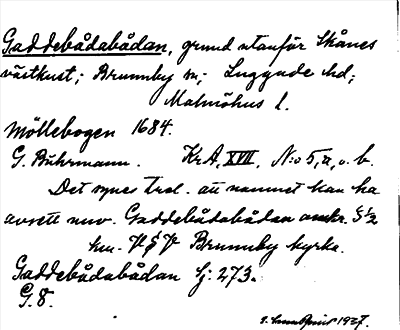 Gaddebådabådan, grund utanför Skånes
västkust; Brunnby sn; Luggude hd;
Malmöhus l.
Möllebogen 1684.
G. Buhrmann. Kr.A, XVII, N:o 5, a, o. b.
Det synes trol. att namnet kan ha
avsett nuv. Gaddebådabådan omkr. 5 1/2
km. V § V Brunnby kyrka.
Gaddebådabådan Sj: 273.
G. 8.
1927.